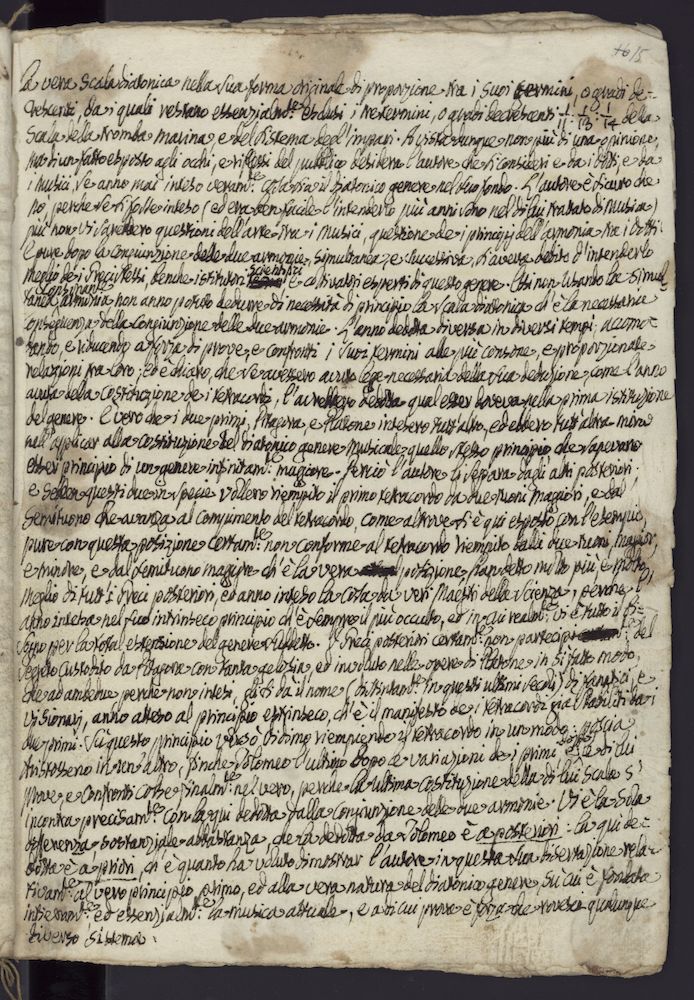 615
La vera Scala diatonica nella sua forma originale di proporzione tra i suoi termini, o gradi de-
crescenti, da i quali restano essenzialm.te esclusi i tre termini, o gradi decrescenti 1/11 : 1/13 : 1/14 della
Scala della Tromba marina, e del Sistema degl'Impari. A vista dunque non più di una opinione,
ma di un fatto esposto agli occhi, e riflessi del pubblico desidera l'autore che si consideri e da i Dotti, e da
i Musici, se anno mai inteso veram.te cosa sia il diatonico genere nel suo fondo. L'autore è sicuro che
nò, perche se si fosse inteso (ed era ben facile l'intenderlo più anni sono nel di lui trattato di Musica)
più non vi sarebbero questioni dell'arte tra i Musici, questione de i principj dell'armonia tra i Dotti.
E pure dopo la congiunzione delle due armonie, simultanea, e successiva, si aveva debito d'intenderlo
meglio de i Greci stessi, benche istitutori scientifici e coltivatori esperti di questo genere. Essi non usando la simul-
tanea consonante armonia non anno potuto dedurre di necessità di principio la Scala diatonica ch'è la necessaria
conseguenza della congiunzione delle due armonie. L'anno dedotta diversa in diversi tempi, accomo-
dando, e riducendo a forza di prove, e confronti i suoi termini alle più consone, e proporzionali
relazioni tra loro; ed è chiaro, che se avessero avuto legge necessaria della sua deduzione, come l'anno
avuta della costituzione de i tetracordi, l'avrebbero dedotta qual esser doveva nella prima istituzione
del genere. E vero che i due primi, Pitagora, e Platone intesero tutt'altro, ed ebbero tutt'altra mira
nell'applicar alla costituzione del diatonico genere Musicale quello stesso principio che sapevano
esser principio di un genere infinitam.te maggiore. Perciò l'autore li separa dagli altri posteriori.
e sebben questi due in specie vollero riempito il primo tetracordo da due tuoni maggiori, e dal
Semituono che avanza al compimento del tetracordo, come altrove si è qui esposto con l'esempio,
pure con questa posizione certam.te non conforme al tetracordo riempito dalli due tuoni, maggior,
e minore, e dal semituono maggiore ch'è la vera posizione, han detto molto più e molto
meglio di tutt'i Greci posteriori, ed anno inteso la cosa da veri Maestri della scienza, perche l'
anno intesa nel suo intrinseco principio ch'è sempre il più occulto, ed in cui realm.te vi è tutto il bi-
sogno per la total estensione del genere suddetto. I Greci posteriori certam.te non partecipi del
segreto custodito da Pitagora con tanta gelosia, ed involuto nelle opere di Platone in si fatto modo,
che ad ambedue perche non intesi, gli si dà il nome (distintam.te in questi ultimi secoli) di fanatici, e
visionarj, anno atteso al principio estrinseco, ch'è il manifesto de i tetracordi già stabiliti da i
due primi. Su questo principio versò Didimo riempiendo il tetracordo in un modo: poscia
Aristosseno in un altro, finche Tolomeo l'ultimo dopo le variazioni de i primi dopo di cui
prove, e confronti colse finalm.te nel vero, perche la ultima costituzione della di lui Scala s'
incontra precisam.te con la qui dedotta dalla congiunzione delle due armonie. Vi è la sola
differenza sostanziale abbastanza, che la dedotta da Tolomeo è a posteriori: la qui de-
dotta è a priori, ch'è quanto ha voluto dimostrar l'autore in questa sua dissertazione rela-
tivam.te al vero principio primo, ed alla vera natura del diatonico genere, su cui è fondata
interam.te ed essenzialm.te la musica attuale, e a di cui prove è forza che rovesci qualunque
diverso sistema.